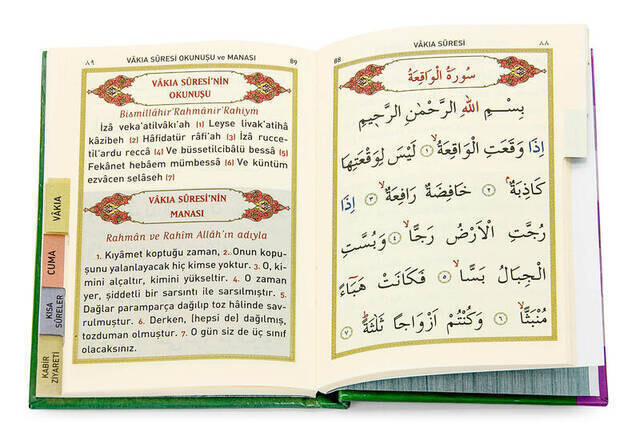 ٨٩ VÂKIA SÛRESİ OKUNUŞU ve MANASI 89
VÂKIA SÛRESİ'NİN
OKUNUŞU
Bismillâhir'Rahmânir'Rahiym
İzâ veka'atilvâkı'ah (1) Leyse livak'atihâ
kâzibeh (2) Hâfidatür râfi'ah (3) İzâ rucce-
til'ardu reccâ (4) Ve büssetilcibâlü bessâ (5)
Fekânet hebâem mümbessâ (6) Ve küntüm
ezvâcen selâseh (7)
VÂKIA SÛRESİ'NİN
MANASI
Rahmân ve Rahîm Allâh'ın adıyla
1. Kıyâmet koptuğu zaman, 2. Onun kopu-
şunu yalanlayacak hiç kimse yoktur. 3. O, ki-
mini alçaltır, kimini yükseltir. 4. O zaman
yer, şiddetli bir sarsıntı ile sarsılmıştır. 5.
Dağlar paramparça dağılıp toz hâlinde sav-
rulmuştur. 6. Derken, (hepsi de) dağılmış,
tozduman olmuştur. 7. O gün siz de üç sınıf
olacaksınız.
VÂKIA
CUMA
KISA
SÛRELER
KABİR
ZİYARETİ
88 VÂKIA SÛRESİ ٨٨
سُورَةُ الْوَاقِعَةِ
بِسْمِ اللّٰهِ الرَّحْمٰنِ الرَّحِيمِ
اِذَا وَقَعَتِ الْوَاقِعَةُ ١ لَيْسَ لِوَقْعَتِهَا
كَاذِبَةٌ ٢ خَافِضَةٌ رَافِعَةٌ ٣ اِذَا
رُجَّتِ الْاَرْضُ رَجًّا ٤ وَبُسَّتِ
الْجِبَالُ بَسًّا ٥ فَكَانَتْ هَبَٓاءً
مُنْبَثًّا ٦ وَكُنْتُمْ اَزْوَاجًا ثَلٰثَةً ٧